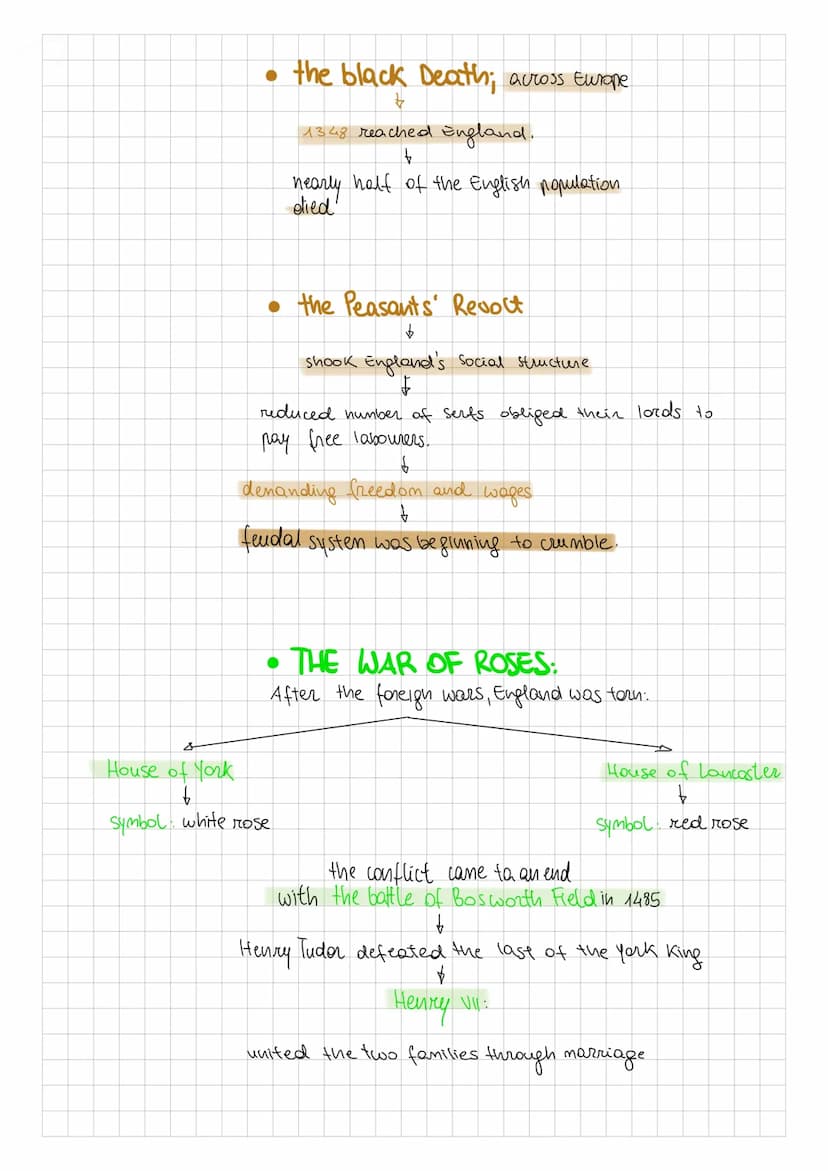 • the black Death; across Europe
1348 reached England.
nearly half of the English population
died
• the Peasants' Revolt
shook England's Social Structure
reduced number of serfs obliged their lords to
pay free labourers.
demanding freedom and wages
feudal system was beginning to crumble.
• THE WAR OF ROSES:
After the foreign wars, England was torn:
House of York
House of Lancaster
symbol: white rose
symbol: red rose
the conflict came to an end
with the battle of Bosworth Field in 1485
Henry Tudor defeated the last of the York King
Henry VII:
united the two families through marriage